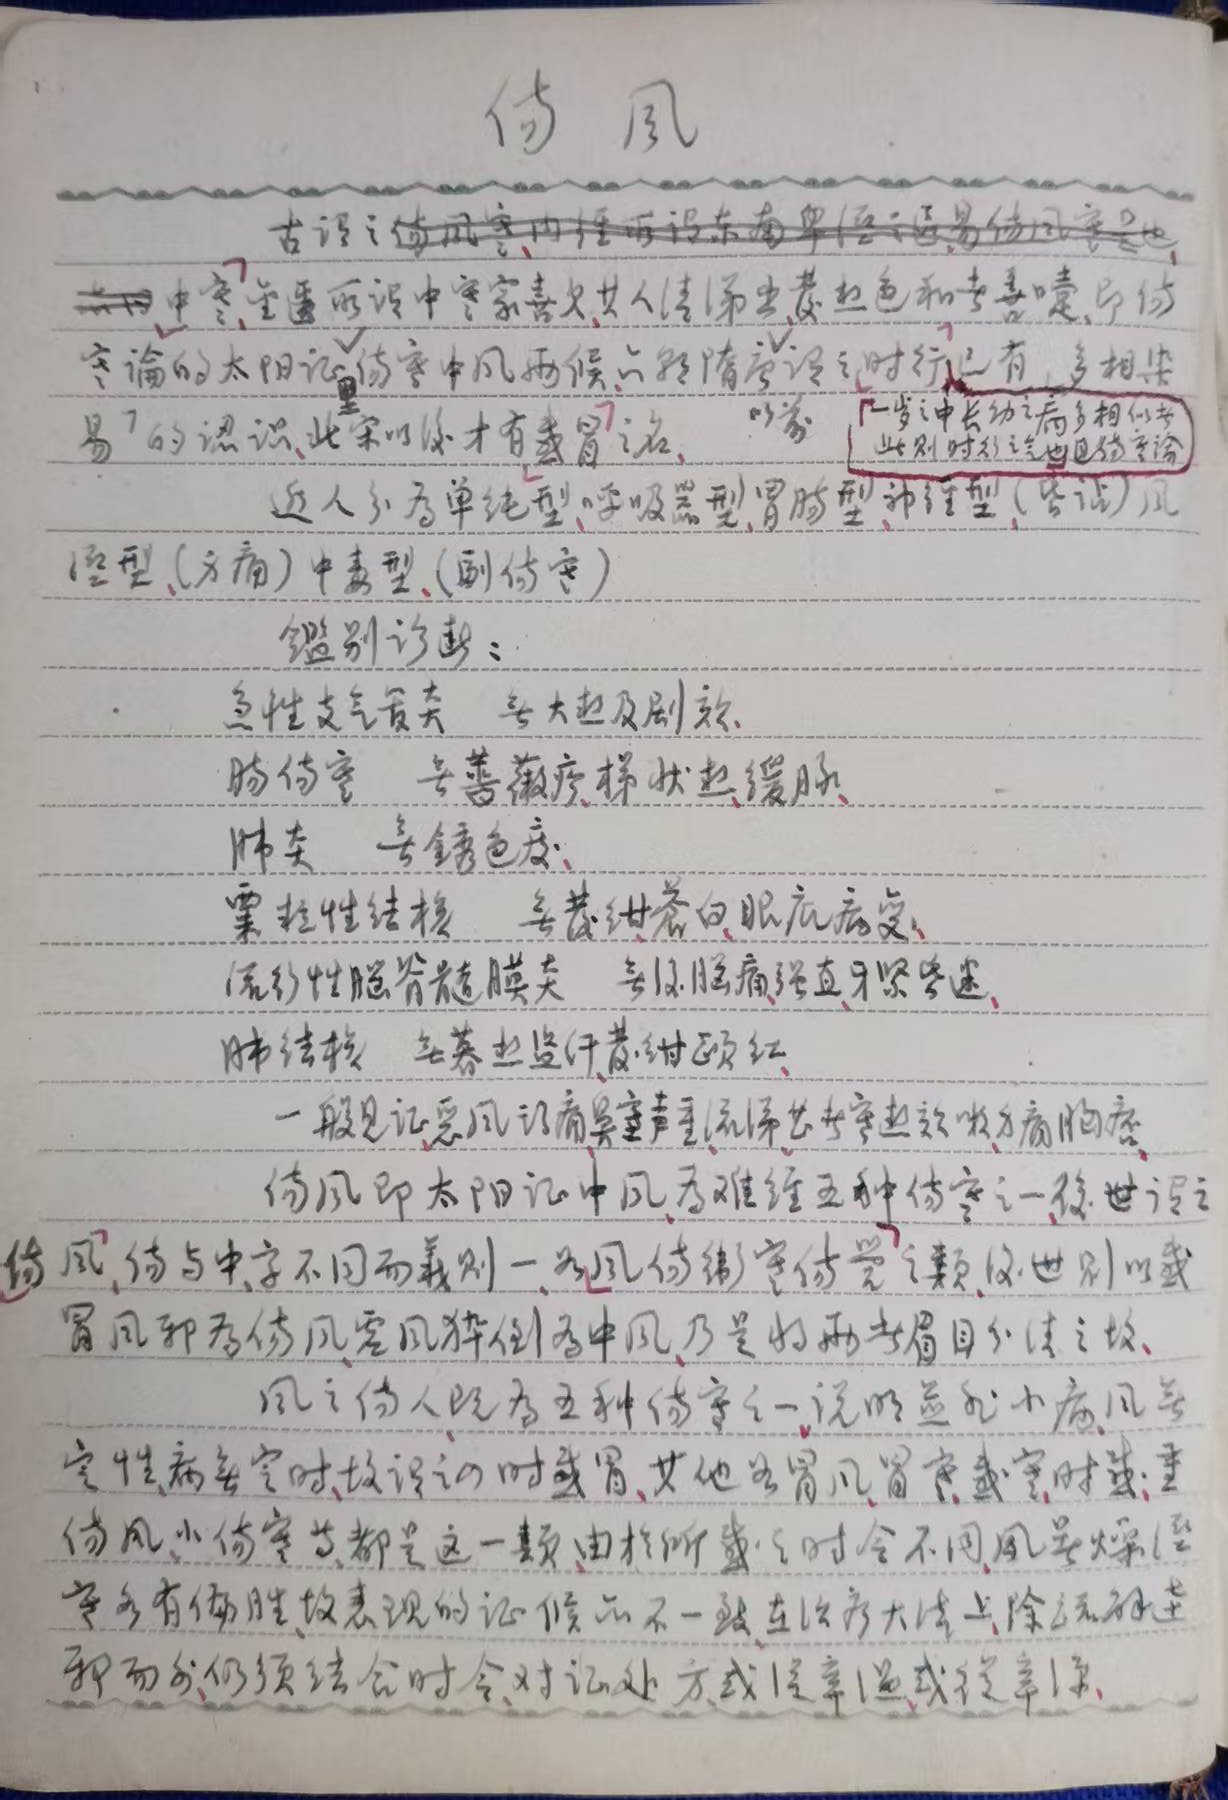 伤风
古谓之伤风寒,内经所谓东南卑湿之邑,易伤风寒是也,
中寒,金匮所谓中寒家喜欠,其人清涕出,发热色和者善嚏,即伤
寒论的太阳证里伤寒中风两候,六朝隋唐谓之时行,已有,多相染
易”的认识,此宋以后才有感冒之名,以前
「一岁之中长幼之病多相似者
此则时行之气也」见伤寒论
近人分为单纯型,呼吸器型,胃肠型,神经型,(昏谵)风
湿型,(身痛)中毒型,(副伤寒)
鑑别诊断:
急性支气管炎 无大热及剧咳,
肠伤寒 无蔷薇疹,梯状热,缓脉,
肺炎 无锈色痰,
粟粒性结核 无发绀,苍白,眼底病变,
流行性脑脊髓膜炎 无后脑痛,强直,牙紧,昏迷,
肺结核 无暮热盗汗,发绀颧红,
一般见证,恶风头痛鼻塞声重,流涕出者寒热咳嗽身痛胸痞,
伤风即太阳证中风,为难经五种伤寒之一,后世谓之
伤风,伤与中,字不同而義则一,如风伤卫寒伤营之類,后世别以感
冒风邪为伤风,虚风猝倒为中风,乃是将两者眉目分清之故,
风之伤人,既为五种伤寒之一,说明并非小病,风无
定性,病无定时,故谓之时感冒,其他如冒风,冒寒,感寒,时感,重
伤风,小伤寒等,都是这一類,由於所感之时令不同,风暑燥湿
寒各有偏胜,故表现的证候亦不一致,在治疗大法上,除疏解达
邪而外,仍须结合时令,对证处方,或从辛温,或从辛凉,